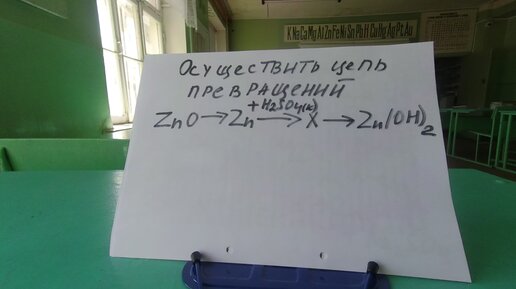 K Na Ca Mg Al Zn Fe Ni Sn Pb H Cu Hg Ag Pt Au
ОСУЩЕСТВИТЬ ЦЕПЬ
ПРЕВРАЩЕНИЙ
+H2SO4(к)
ZnO → Zn → X → Zn(OH)2